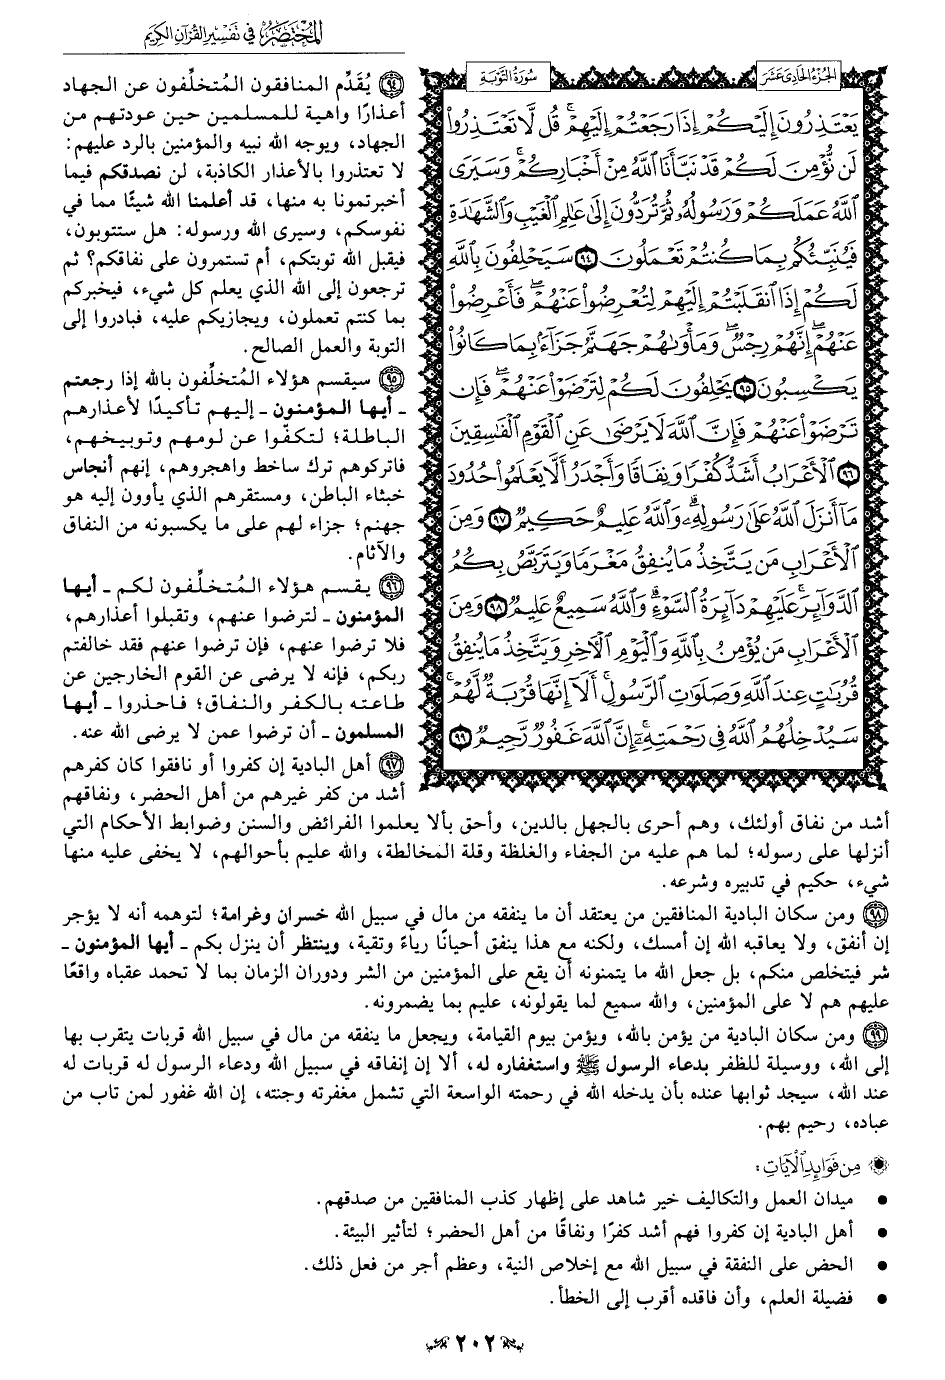 المختصر في تفسير القرآن الكريم
الجزء الحادي عشر
سورة التوبة
يَعۡتَذِرُونَ إِلَيۡكُمۡ إِذَا رَجَعۡتُمۡ إِلَيۡهِمۡۚ قُل لَّا تَعۡتَذِرُواْ
لَن نُّؤۡمِنَ لَكُمۡ قَدۡ نَبَّأَنَا ٱللَّهُ مِنۡ أَخۡبَارِكُمۡۚ وَسَيَرَى
ٱللَّهُ عَمَلَكُمۡ وَرَسُولُهُۥ ثُمَّ تُرَدُّونَ إِلَىٰ عَٰلِمِ ٱلۡغَيۡبِ وَٱلشَّهَٰدَةِ
فَيُنَبِّئُكُم بِمَا كُنتُمۡ تَعۡمَلُونَ ٩٤ سَيَحۡلِفُونَ بِٱللَّهِ
لَكُمۡ إِذَا ٱنقَلَبۡتُمۡ إِلَيۡهِمۡ لِتُعۡرِضُواْ عَنۡهُمۡۖ فَأَعۡرِضُواْ
عَنۡهُمۡۖ إِنَّهُمۡ رِجۡسٞۖ وَمَأۡوَىٰهُمۡ جَهَنَّمُ جَزَآءَۢ بِمَا كَانُواْ
يَكۡسِبُونَ ٩٥ يَحۡلِفُونَ لَكُمۡ لِتَرۡضَوۡاْ عَنۡهُمۡۖ فَإِن
تَرۡضَوۡاْ عَنۡهُمۡ فَإِنَّ ٱللَّهَ لَا يَرۡضَىٰ عَنِ ٱلۡقَوۡمِ ٱلۡفَٰسِقِينَ
٩٦ ٱلۡأَعۡرَابُ أَشَدُّ كُفۡرٗا وَنِفَاقٗا وَأَجۡدَرُ أَلَّا يَعۡلَمُواْ حُدُودَ
مَآ أَنزَلَ ٱللَّهُ عَلَىٰ رَسُولِهِۦۗ وَٱللَّهُ عَلِيمٌ حَكِيمٞ ٩٧ وَمِنَ
ٱلۡأَعۡرَابِ مَن يَتَّخِذُ مَا يُنفِقُ مَغۡرَمٗا وَيَتَرَبَّصُ بِكُمُ
ٱلدَّوَآئِرَۚ عَلَيۡهِمۡ دَآئِرَةُ ٱلسَّوۡءِۗ وَٱللَّهُ سَمِيعٌ عَلِيمٞ ٩٨ وَمِنَ
ٱلۡأَعۡرَابِ مَن يُؤۡمِنُ بِٱللَّهِ وَٱلۡيَوۡمِ ٱلۡأٓخِرِ وَيَتَّخِذُ مَا يُنفِقُ
قُرُبَٰتٍ عِندَ ٱللَّهِ وَصَلَوَٰتِ ٱلرَّسُولِۚ أَلَآ إِنَّهَا قُرۡبَةٞ لَّهُمۡۚ
سَيُدۡخِلُهُمُ ٱللَّهُ فِي رَحۡمَتِهِۦٓۚ إِنَّ ٱللَّهَ غَفُورٞ رَّحِيمٞ ٩٩
٩٤ يُقَدِّم المنافقون المُتخلِّفون عن الجهاد
أعذارًا واهية للمسلمين حين عودتهم من
الجهاد، ويوجه الله نبيه والمؤمنين بالرد عليهم:
لا تعتذروا بالأعذار الكاذبة، لن نصدقكم فيما
أخبرتمونا به منها، قد أعلمنا الله شيئًا مما في
نفوسكم، وسيرى الله ورسوله: هل ستتوبون،
فيقبل الله توبتكم، أم تستمرون على نفاقكم؟ ثم
ترجعون إلى الله الذي يعلم كل شيء، فيخبركم
بما كنتم تعملون، ويجازيكم عليه، فبادروا إلى
التوبة والعمل الصالح.
٩٥ سيقسم هؤلاء المُتخلِّفون بالله إذا رجعتم
ـ أيها المؤمنون ـ إليهم تأكيدًا لأعذارهم
الباطلة؛ لتكفّوا عن لومهم وتوبيخهم،
فاتركوهم ترك ساخط واهجروهم، إنهم أنجاس
خبثاء الباطن، ومستقرهم الذي يأوون إليه هو
جهنم؛ جزاء لهم على ما يكسبونه من النفاق
والآثام.
٩٦ يقسم هؤلاء المُتخلِّفون لكم ـ أيها
المؤمنون ـ لترضوا عنهم، وتقبلوا أعذارهم،
فلا ترضوا عنهم، فإن ترضوا عنهم فقد خالفتم
ربكم، فإنه لا يرضى عن القوم الخارجين عن
طاعته بالكفر والنفاق؛ فاحذروا ـ أيها
المسلمون ـ أن ترضوا عمن لا يرضى الله عنه.
٩٧ أهل البادية إن كفروا أو نافقوا كان كفرهم
أشد من كفر غيرهم من أهل الحضر، ونفاقهم
أشد من نفاق أولئك، وهم أحرى بالجهل بالدين، وأحق بألا يعلموا الفرائض والسنن وضوابط الأحكام التي
أنزلها على رسوله؛ لما هم عليه من الجفاء والغلظة وقلة المخالطة، والله عليم بأحوالهم، لا يخفى عليه منها
شيء، حكيم في تدبيره وشرعه.
٩٨ ومن سكان البادية المنافقين من يعتقد أن ما ينفقه من مال في سبيل الله خسران وغرامة؛ لتوهمه أنه لا يؤجر
إن أنفق، ولا يعاقبه الله إن أمسك، ولكنه مع هذا ينفق أحيانًا رياءً وتقية، وينتظر أن ينزل بكم ـ أيها المؤمنون ـ
شر فيتخلص منكم، بل جعل الله ما يتمنونه أن يقع على المؤمنين من الشر ودوران الزمان بما لا تحمد عقباه واقعًا
عليهم هم لا على المؤمنين، والله سميع لما يقولونه، عليم بما يضمرونه.
٩٩ ومن سكان البادية من يؤمن بالله، ويؤمن بيوم القيامة، ويجعل ما ينفقه من مال في سبيل الله قربات يتقرب بها
إلى الله، ووسيلة للظفر بدعاء الرسول ﷺ واستغفاره له، ألا إن إنفاقه في سبيل الله ودعاء الرسول له قربات له
عند الله، سيجد ثوابها عنده بأن يدخله الله في رحمته الواسعة التي تشمل مغفرته وجنته، إن الله غفور لمن تاب من
عباده، رحيم بهم.
من فوائد الآيات:
• ميدان العمل والتكاليف خير شاهد على إظهار كذب المنافقين من صدقهم.
• أهل البادية إن كفروا فهم أشد كفرًا ونفاقًا من أهل الحضر؛ لتأثير البيئة.
• الحض على النفقة في سبيل الله مع إخلاص النية، وعظم أجر من فعل ذلك.
• فضيلة العلم، وأن فاقده أقرب إلى الخطأ.
٢٠٢